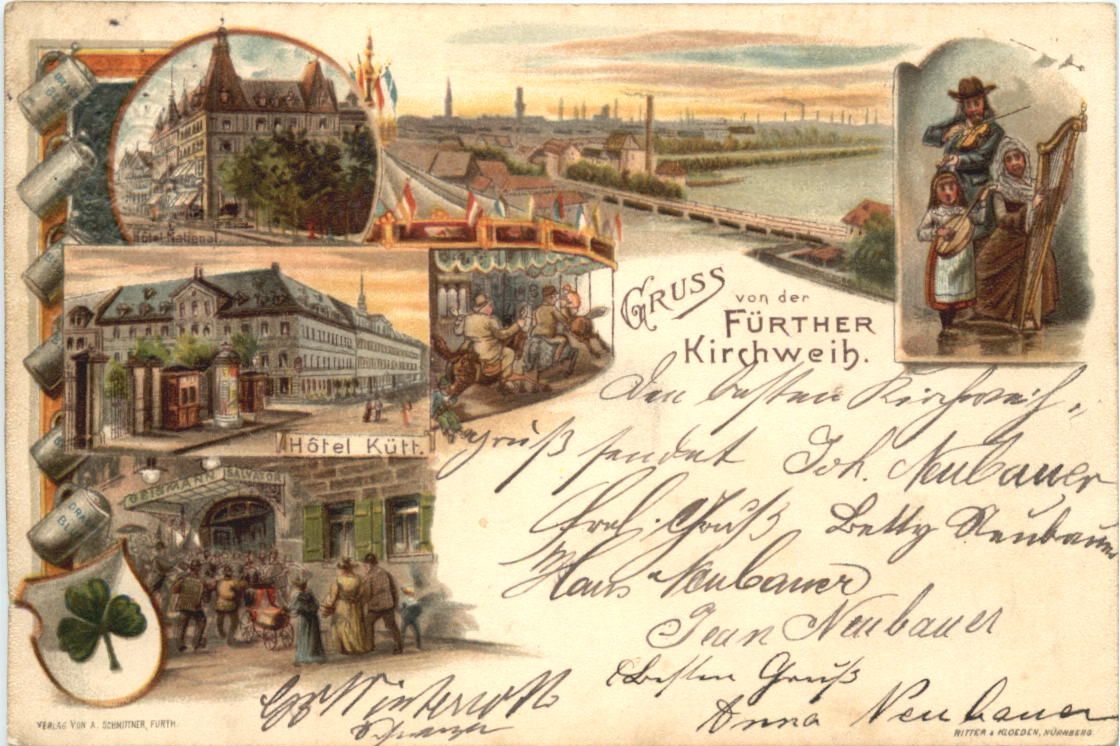 Hôtel National.
GRUSS
von der
FÜRTHER
Kirchweih.
Hôtel Kütt.
GEISMANN SALVATOR
Den besten Kirchweih-
gruß sendet Joh. Neubauer
Frdl. Gruß Betty Neubauer
Hans Neubauer
Jean Neubauer
Besten Gruß
Anna Neubauer
VERLAG VON A. SCHMITTNER, FÜRTH.
RITTER & KLOEDEN, NÜRNBERG.